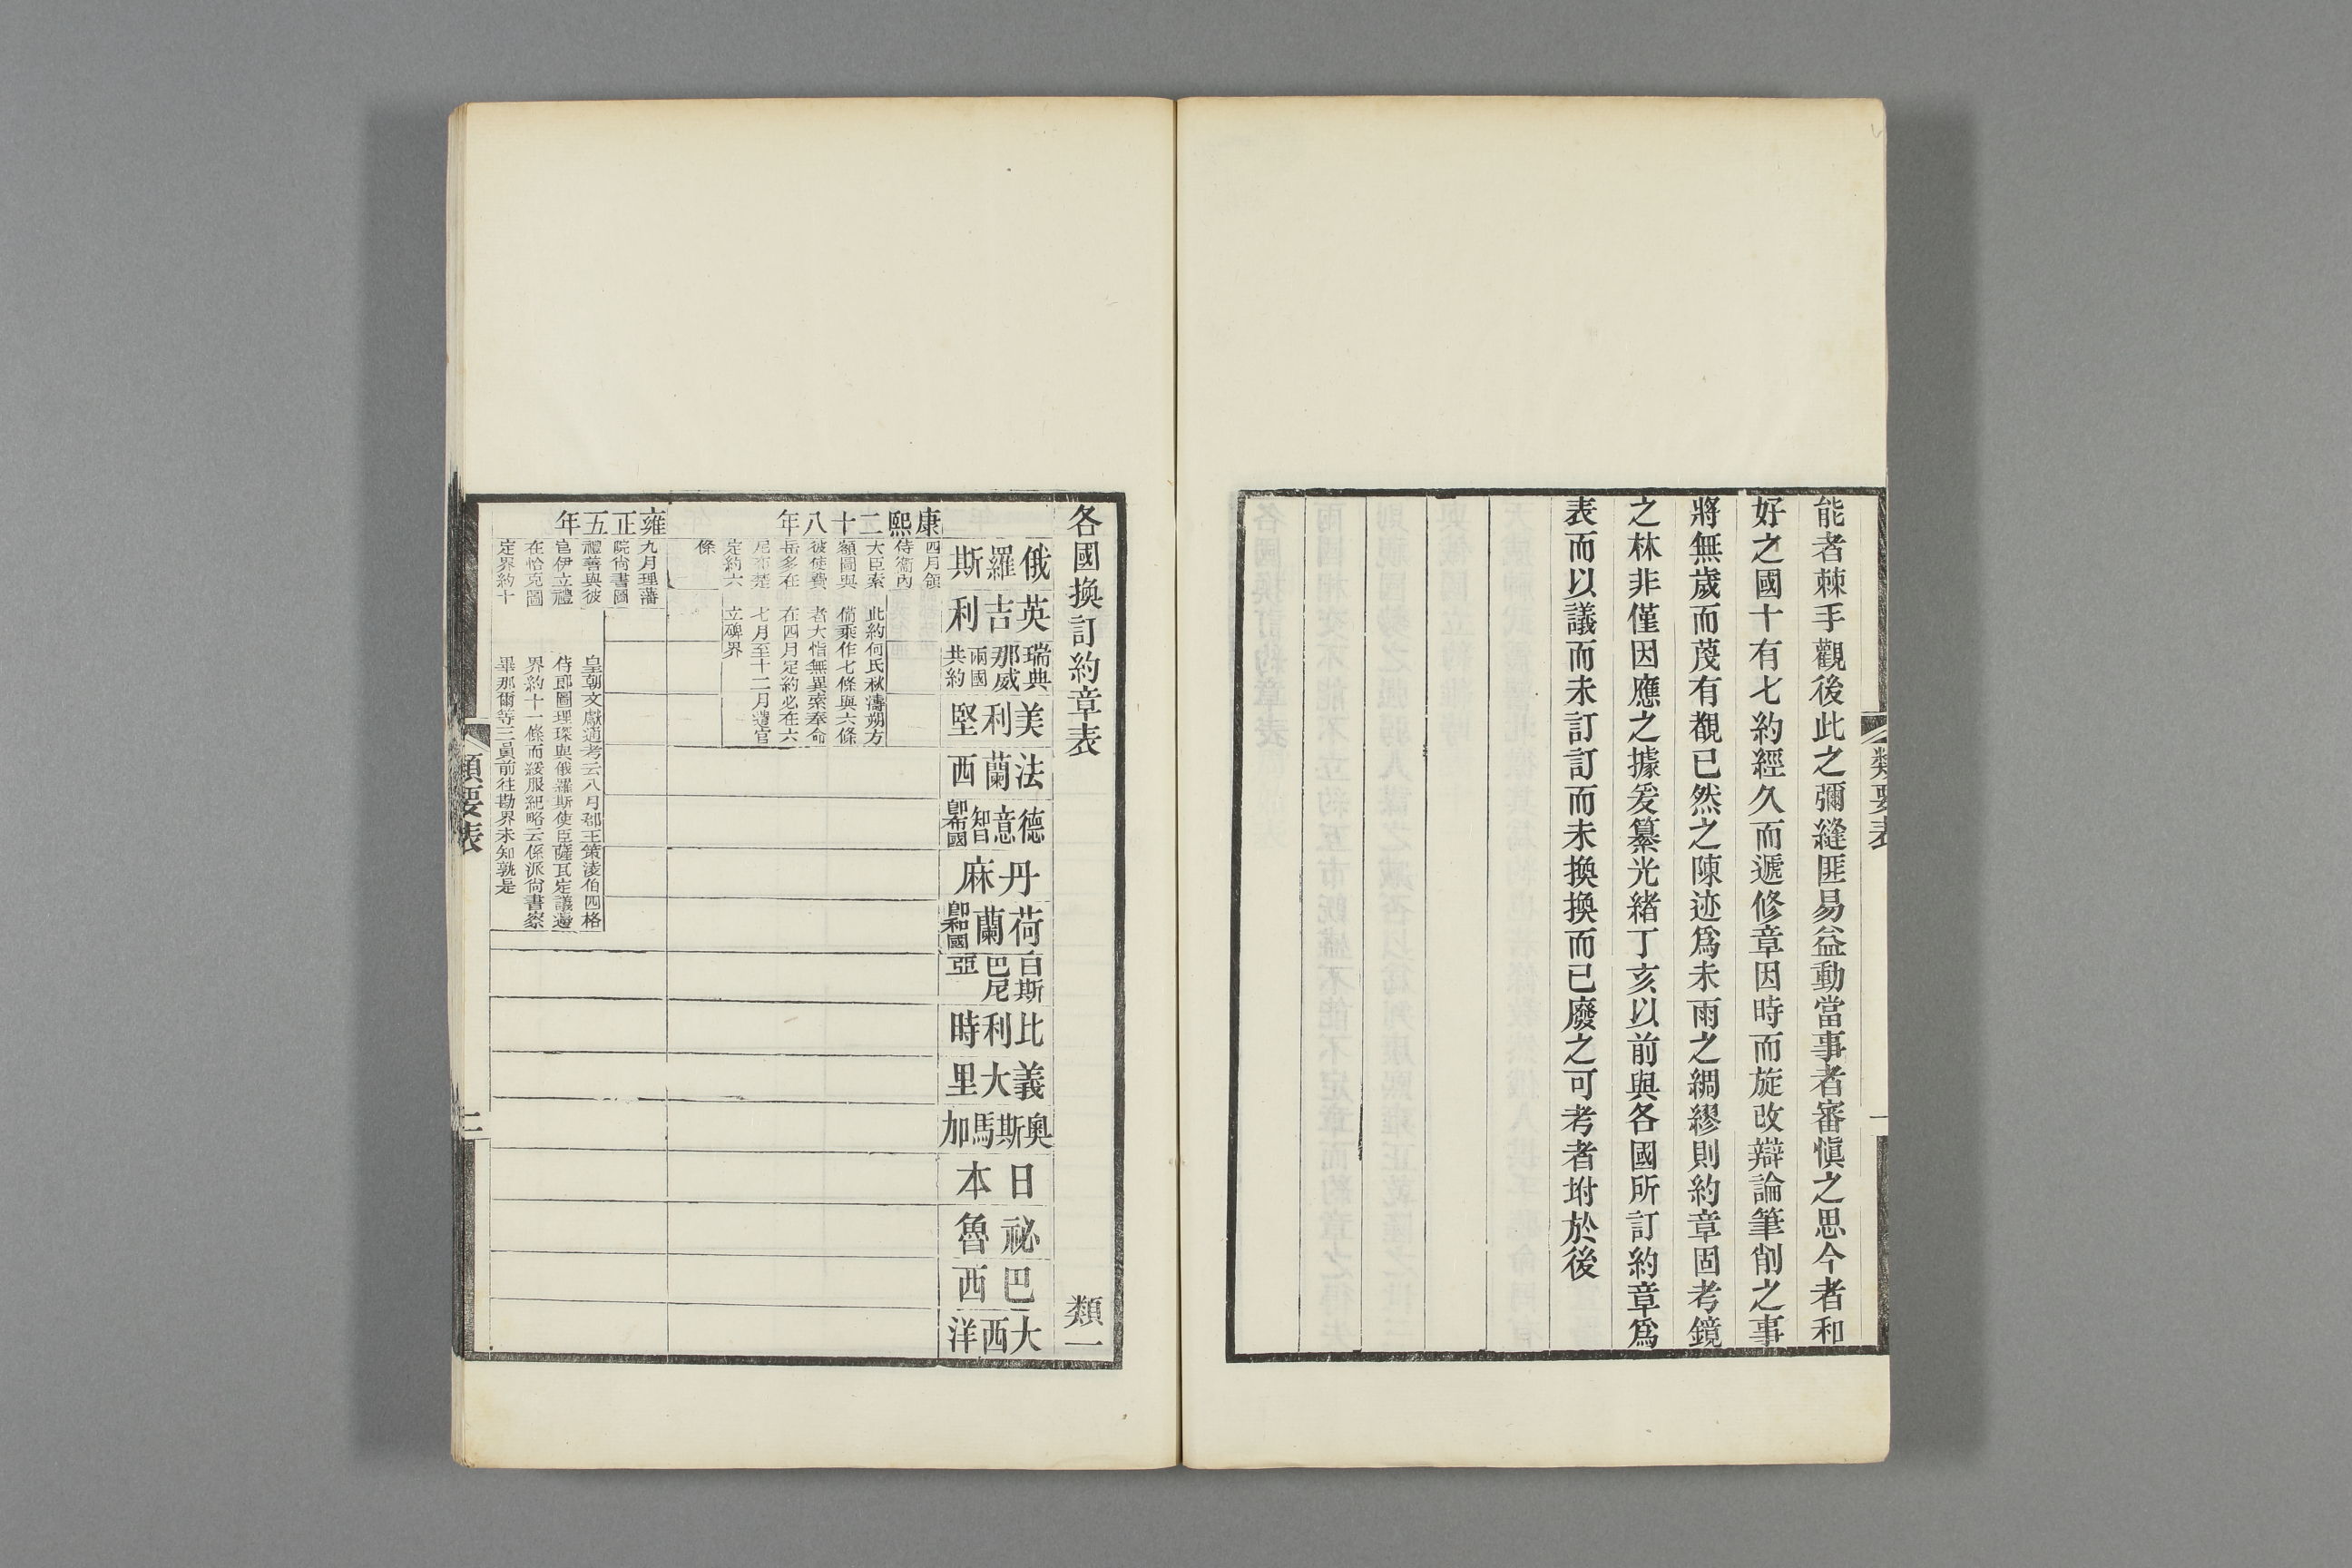 能者棘手觀後此之彌縫匪易益動當事者審愼之思今者和
好之國十有七約經久而遞修章因時而旋改辯論筆削之事
將無歲而蔑有覩已然之陳迹爲未雨之綢繆則約章固考鏡
之林非僅因應之據爰纂光緒丁亥以前與各國所訂約章爲
表而以議而未訂訂而未換換而已廢之可考者坿於後
類要表
一
各國換訂約章表
類一
俄羅斯
英吉利
瑞典那威兩國共約
美利堅
法蘭西
德意智卽布國
丹麻
荷蘭卽和國
白斯巴尼亞
比利時
義大里
奧斯馬加
日本
祕魯
巴西
大西洋
康熙二十八年
四月領
侍衞內
大臣索
額圖與
彼使費
岳多在
尼布楚
定約六
條
此約何氏秋濤朔方
備乘作七條與六條
者大恉無異索奉命
在四月定約必在六
七月至十二月遣官
立碑界
雍正五年
九月理藩
院尙書圖
禮善與彼
官伊立禮
在恰克圖
定界約十
皇朝文獻通考云八月郡王策淩伯四格
侍郎圖理琛與俄羅斯使臣薩瓦定議邊
界約十一條而綏服紀略云係派尙書察
畢那爾等三員前往勘界未知孰是
類要表
二